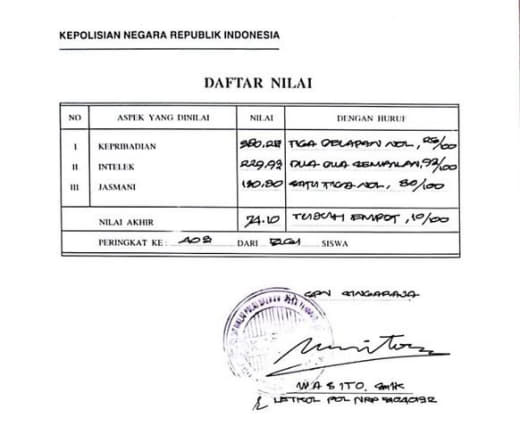 KEPOLISIAN NEGARA REPUBLIK INDONESIA
DAFTAR NILAI
NO ASPEK YANG DINILAI NILAI DENGAN HURUF
I KEPRIBADIAN TIGA DELAPAN NOL,
II INTELEK 229,92 DUA DUA SEMBILAN, 92/100
III JASMANI 130,80 SATU TIGA NOL, 80/100
NILAI AKHIR 74.10 TUJUH EMPAT, 10/00
PERINGKAT KE : 103 DARI SISWA
SPN SINGARAJA
WASITO,
LETKOL POL NRP